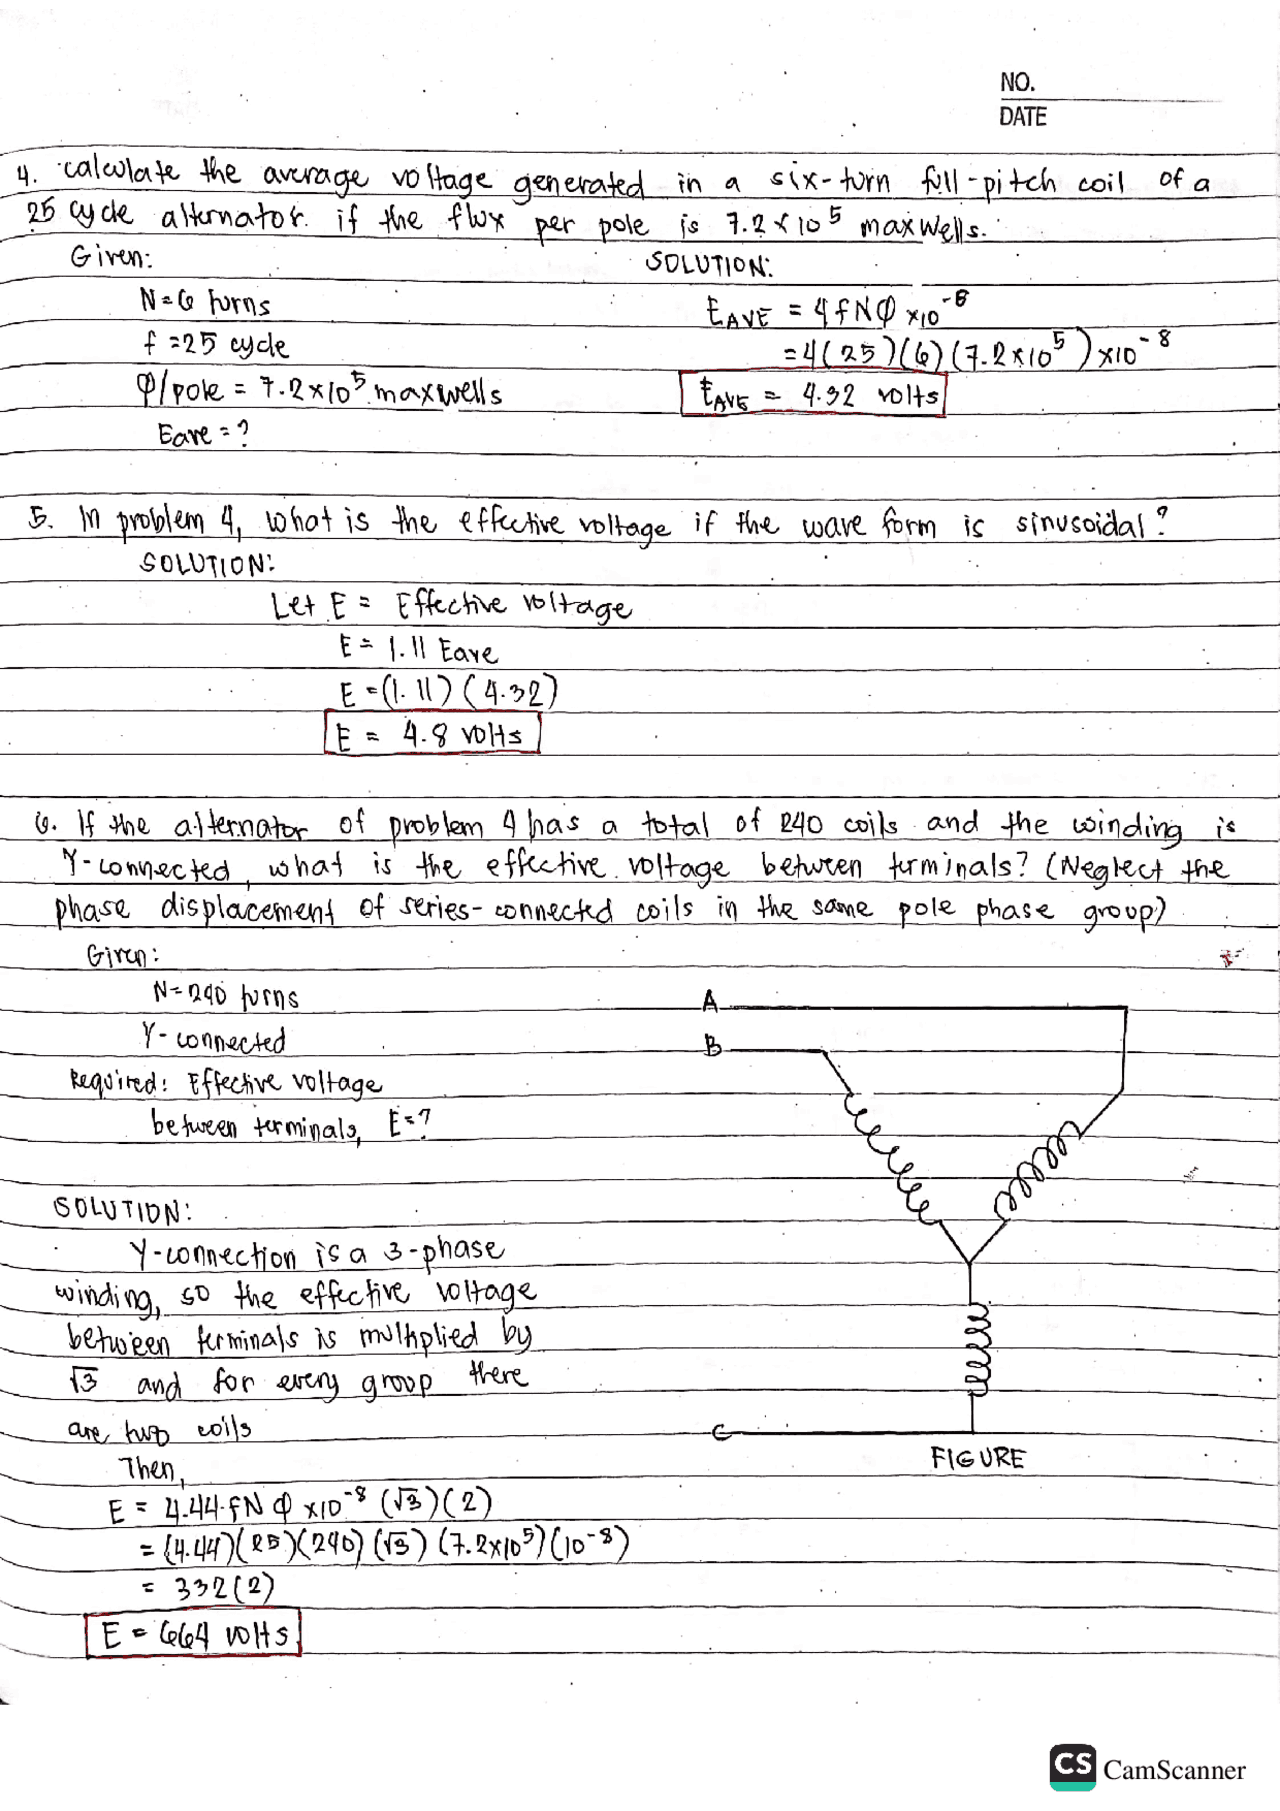 NO.
DATE
4. calculate the average voltage generated in a six-turn full-pitch coil of a
25 cycle alternator if the flux per pole is 7.2 x 10⁵ maxwells.
Given:
N = 6 turns
f = 25 cycle
Φ/pole = 7.2x10⁵ maxwells
Eave = ?
SOLUTION:
EAVE = 4fNΦ x10⁻⁸
= 4(25)(6)(7.2x10⁵)x10⁻⁸
EAVE = 4.32 volts
5. In problem 4, what is the effective voltage if the wave form is sinusoidal?
SOLUTION:
Let E = Effective voltage
E = 1.11 Eave
E = (1.11)(4.32)
E = 4.8 volts
6. If the alternator of problem 4 has a total of 240 coils and the winding is
Y-connected, what is the effective voltage between terminals? (Neglect the
phase displacement of series-connected coils in the same pole phase group)
Given:
N = 240 turns
Y-connected
Required: Effective voltage
between terminals, E = ?
SOLUTION:
Y-connection is a 3-phase
winding, so the effective voltage
between terminals is multiplied by
√3 and for every group there
are two coils
Then,
E = 4.44 fNΦ x10⁻⁸ (√3)(2)
= (4.44)(25)(240)(√3)(7.2x10⁵)(10⁻⁸)
= 332(2)
E = 664 volts
A
B
C
FIGURE
CS CamScanner